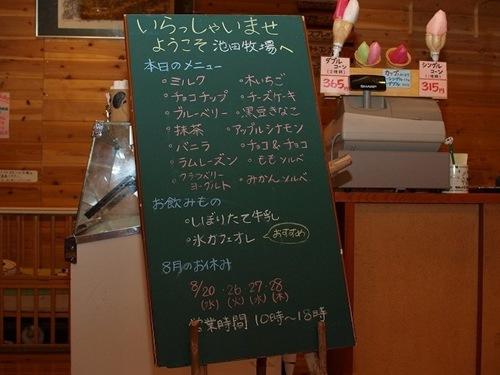 いらっしゃいませ
ようこそ 池田牧場へ
本日のメニュー
・ミルク ・木いちご
・チョコチップ ・チーズケーキ
・ブルーベリー ・黒豆きなこ
・抹茶 ・アップルシナモン
・バニラ ・チョコ&チョコ
・ラムレーズン ・ももソルベ
・クランベリーヨーグルト ・みかんソルベ
お飲みもの
・しぼりたて牛乳
・氷カフェオレ おすすめ
8月のお休み
8/20 ・26 ・27・28
(水) (火) (水) (木)
営業時間 10時~18時
ダブル
コーン
365円
カップ
シングル
ダブル
シングル
コーン
315円
SHARP